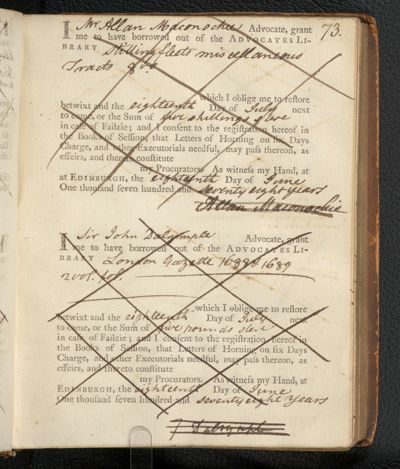 73.
I Mr Allan Maconochie Advocate, grant
me to have borrowed out of the ADVOCATES LI-
BRARY Stillingfleets miscellaneous
Tracts
which I oblige me to restore
betwixt and the eighteenth Day of July next
to come, or the Sum of five shillings
in case of Failzie; and I consent to the registration hereof in
the Books of Session, that Letters of Horning on six Days
Charge, and other Executorials needful, may pass thereon, as
effeirs, and thereto constitute
my Procurators. As witness my Hand, at
at EDINBURGH, the eighteenth Day of June
One thousand seven hundred and seventy eight years
Allan Maconochie
I Sir John Dalrymple Advocate, grant
me to have borrowed out of the ADVOCATES LI-
BRARY London Gazette 1688 & 1689
2 vol. fol.
which I oblige me to restore
betwixt and the eighteenth Day of July next
to come, or the Sum of five pounds
in case of Failzie; and I consent to the registration hereof in
the Books of Session, that Letters of Horning on six Days
Charge, and other Executorials needful, may pass thereon, as
effeirs, and thereto constitute
my Procurators. As witness my Hand, at
EDINBURGH, the eighteenth Day of June
One thousand seven hundred and seventy eight years
J Dalrymple